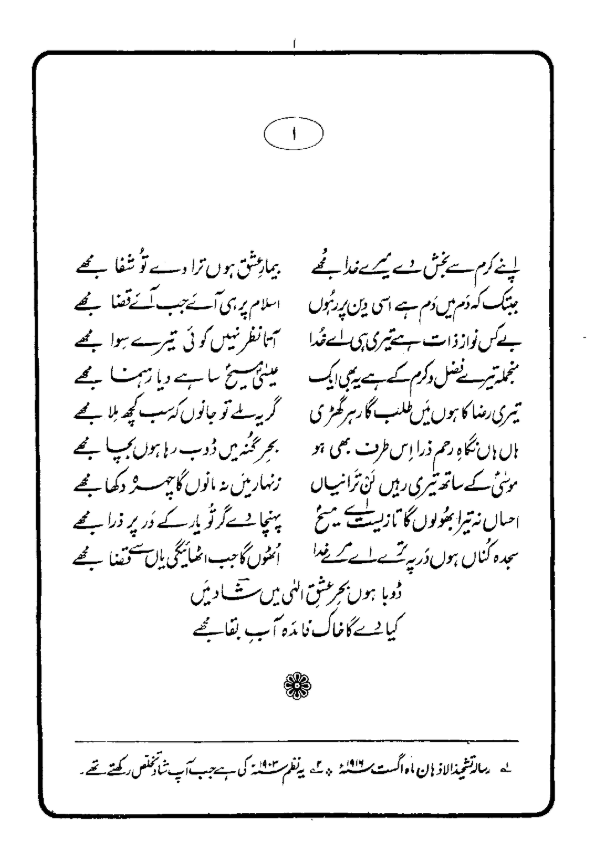 ۱
۱
اپنے کرم سے بخش دے میرے خدا مجھے بیمارِ عشق ہوں ترا دے تُو شفا مجھے
جبتک کہ دَم میں دَم ہے اسی دِین پر رہُوں اسلام پر ہی آئے جب آئے قضا مجھے
بے کس نواز ذات ہے تیری ہی اے خُدا آتا نظر نہیں کوئی تیرے سِوا مجھے
منجملہ تیرے فضل و کرم کے ہے یہ بھی ایک عیسیٰ مسیحؑ سا ہے دیا رہنما مجھے
تیری رضا کا ہوں مَیں طلب گار ہر گھڑی گر یہ ملے تو جانوں کہ سب کچھ مِلا مجھے
ہاں ہاں نگاہِ رحم ذرا اِس طرف بھی ہو بحرِ گنُہ میں ڈوب رہا ہوں بچا مجھے
موسٰیؑ کے ساتھ تیری رہیں لَنْ تَرانیاں زنہار مَیں نہ مانوں گا چہرہ دکھا مجھے
احساں نہ تیرا بھُولوں گا تا زیست اے مسیحؑ پہنچا دے گر تُو یار کے در پر ذرا مجھے
سجدہ کُناں ہوں دَر پہ ترے اے مرے خدا اُٹھوں گا جب اٹھائیگی یاں سے قضا مجھے
ڈوبا ہوں بحرِ عشقِ الٰہی میں شادؔ میں
کیا دے گا خاک فائدہ آبِ بقا مجھے
۱ے رسالہ تشحیذ الاذہان ماہ اگست ۱۹۱۶ء ÷ ۲ے یہ نظم ۱۹۰۳ء کی ہے جب آپ شادؔ تخلص رکھتے تھے۔